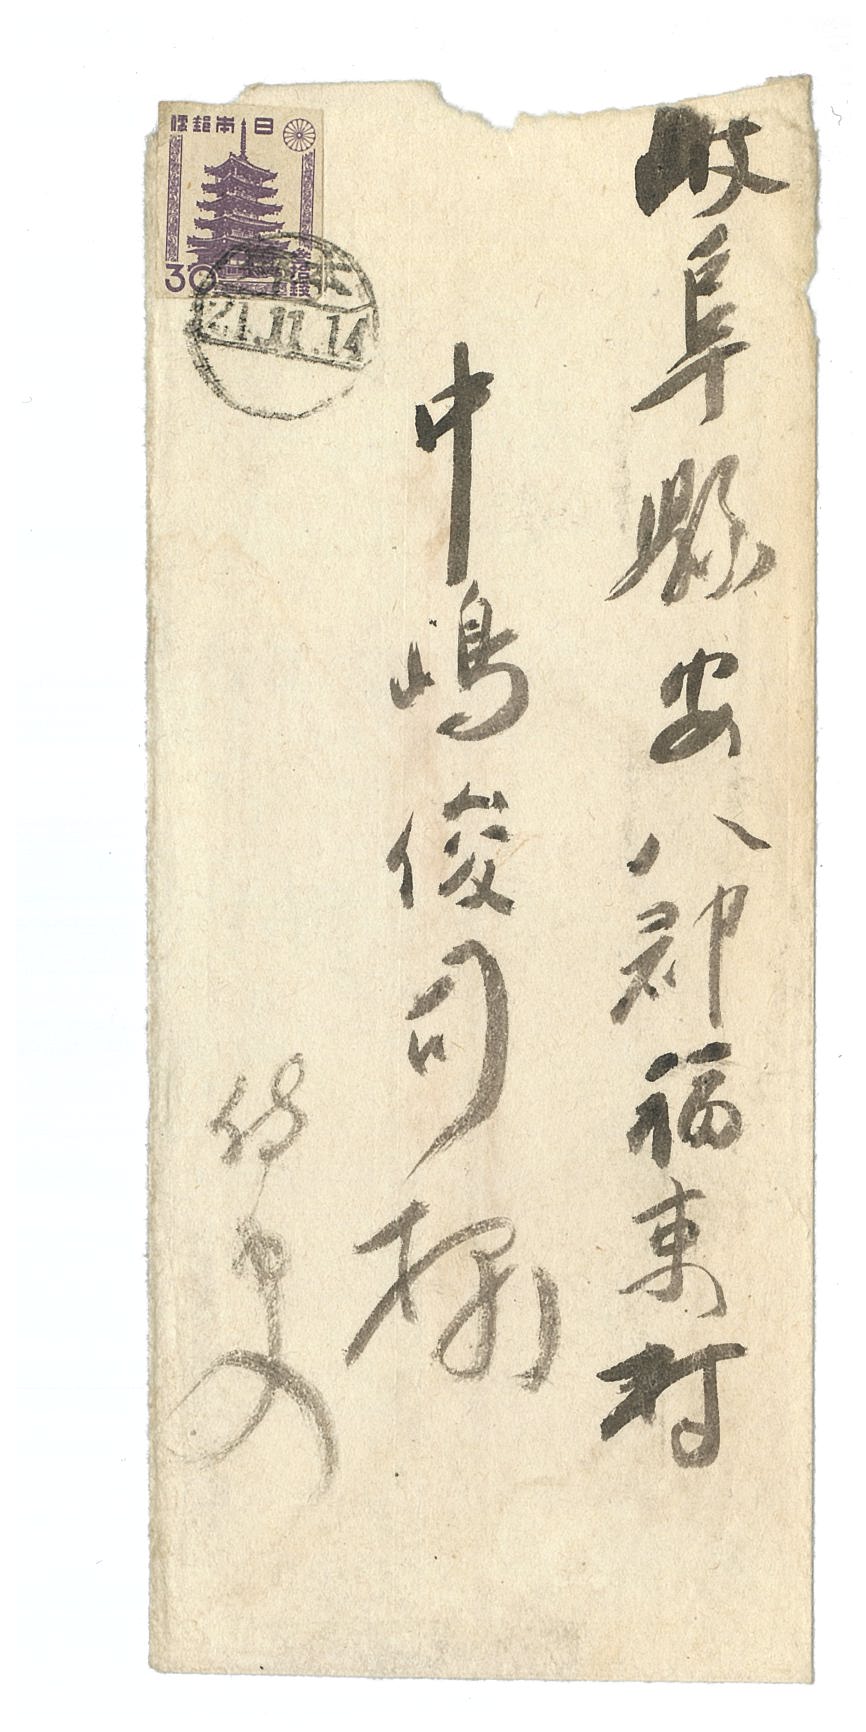 岐阜縣安八郡福束村
中嶋俊司様
侍史
日本郵便
参拾銭
30
21.11.14